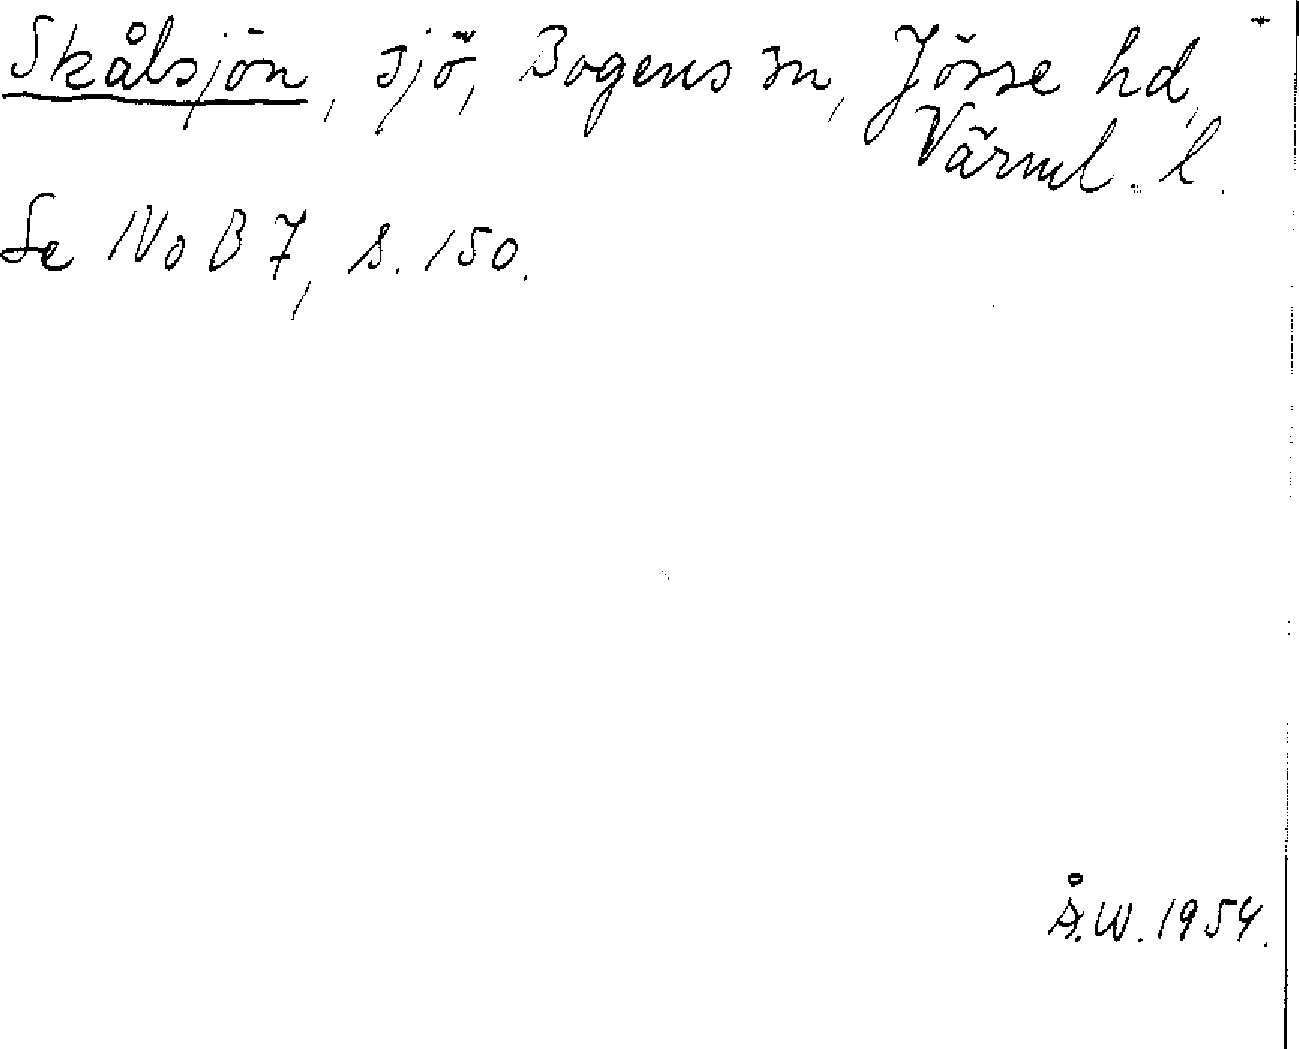 Skålsjön, sjö, Bogens sn, Jösse hd,
Värml. l.
Se NoB 7, s. 150.
Å.W. 1954.